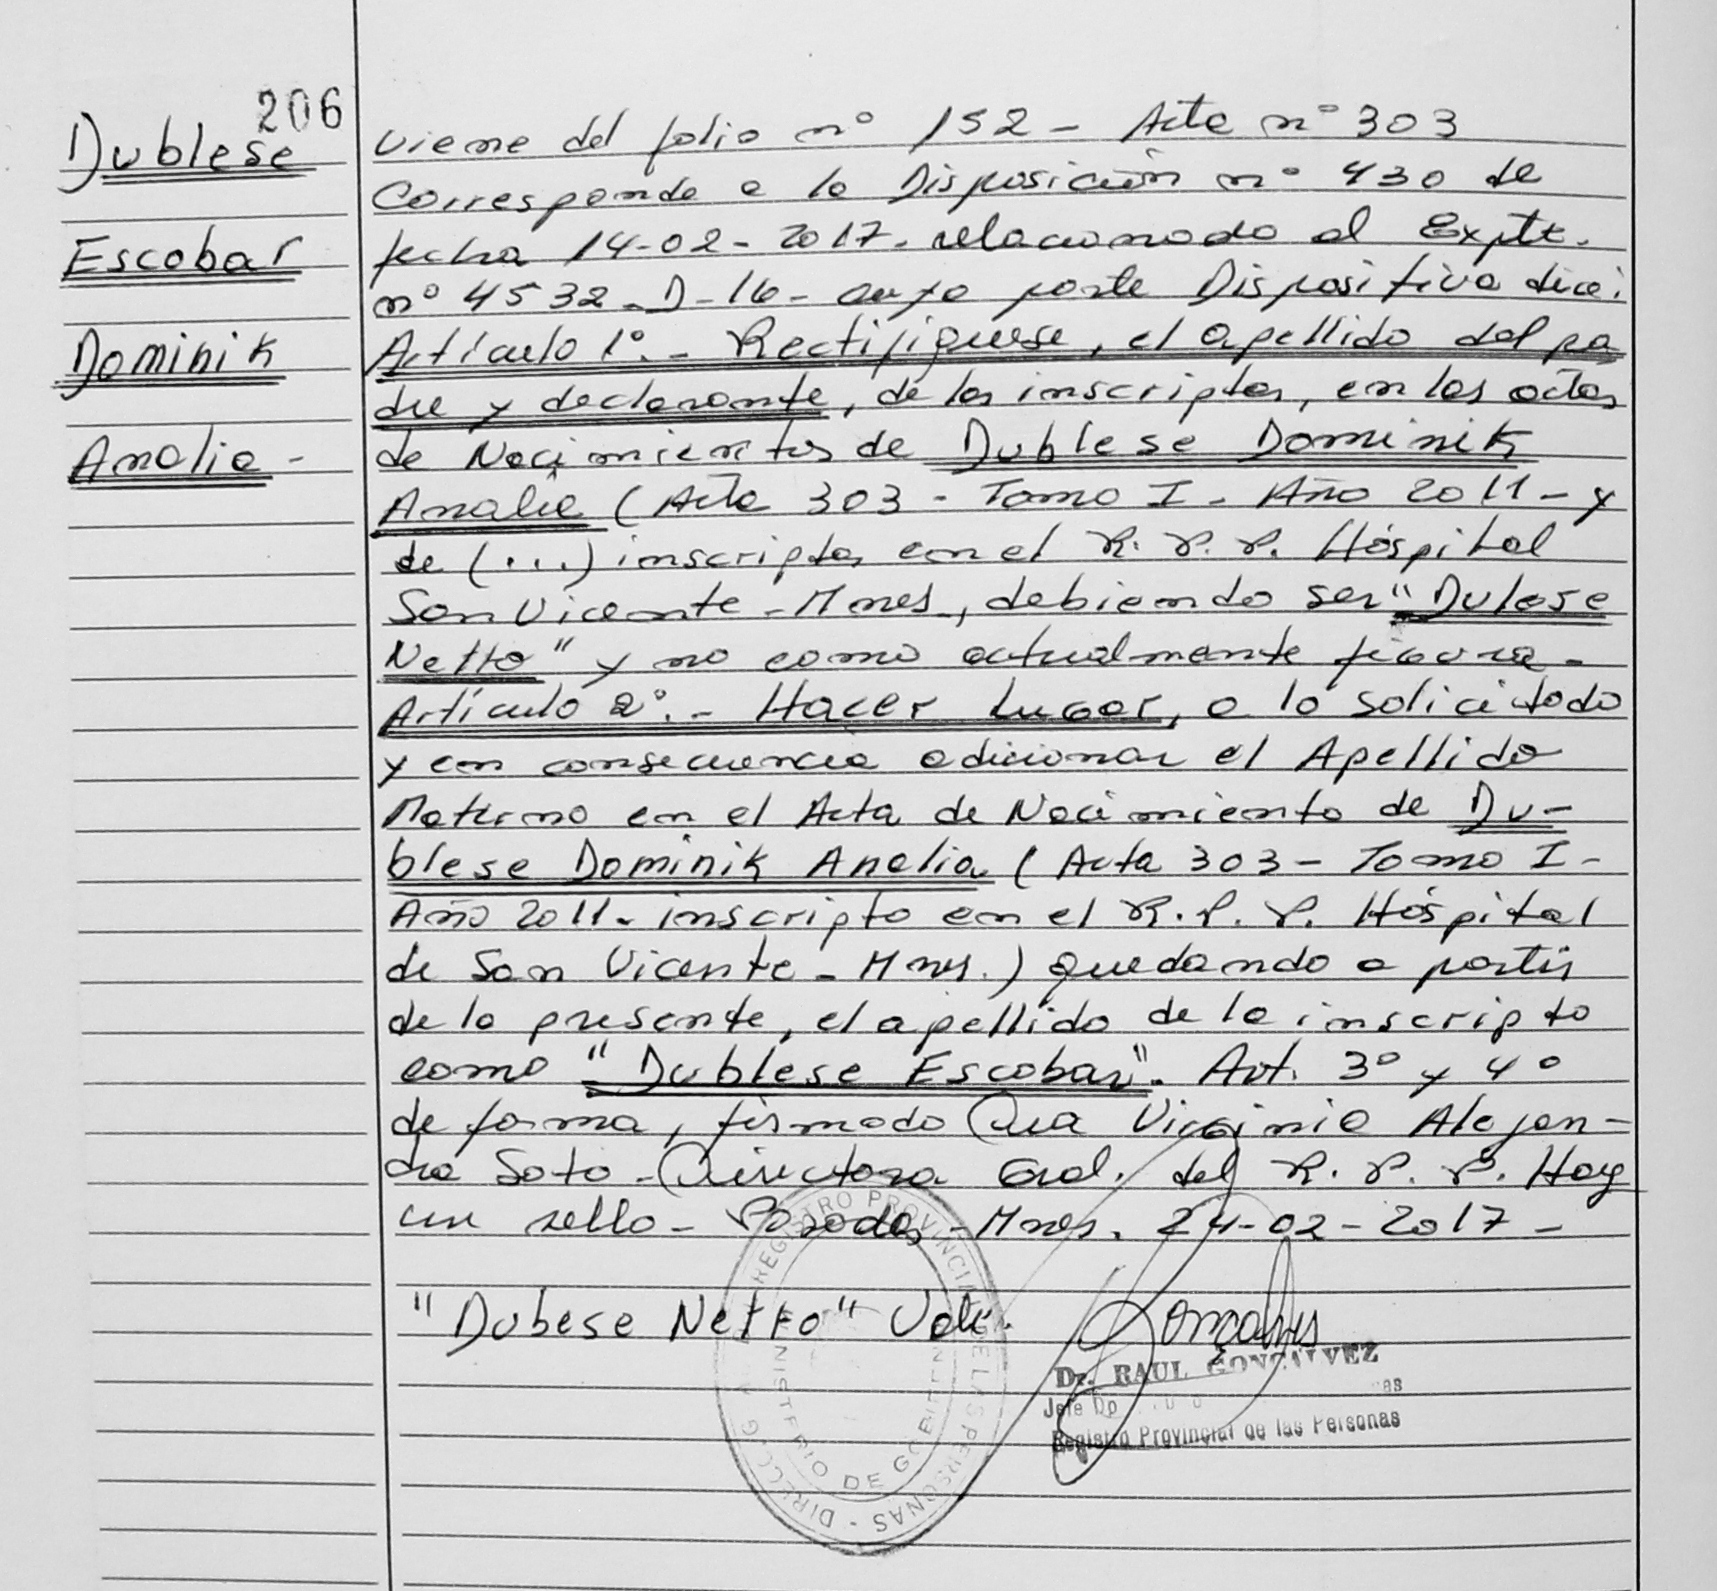 206
Dublese
Escobar
Dominik
Analia -
Viene del folio nº 152 - Acta nº 303
Corresponde a la Disposición nº 430 de
fecha 14-02-2017. relacionado al Expte.
nº 4532-D-16- cuya parte Dispositiva dice:
Artículo 1º.- Rectifíquese, el apellido del pa
dre y declarante, de los inscriptos, en las actas
de Nacimientos de Dublese Dominik
Analia (Acta 303 - Tomo I - Año 2011 - y
de (...) inscriptos en el R. P. P. Hospital
San Vicente - Mnes, debiendo ser "Dulese
Netto" y no como actualmente figura -
Artículo 2º.- Hacer Lugar, a lo solicitado
y en consecuencia adicionar el Apellido
Materno en el Acta de Nacimiento de Du-
blese Dominik Analia (Acta 303 - Tomo I -
Año 2011 - inscripto en el R. P. P. Hospital
de San Vicente - Mnes.) quedando a partir
de la presente, el apellido de la inscripto
como "Dublese Escobar". Art. 3º y 4º
de forma, firmado Dra Virginia Alejan-
dra Soto - Directora Gral. del R. P. P. Hay
un sello - Posadas - Mnes. 24-02-2017 -
"Dubese Netto" Vale.
Dr. RAUL GONCALVEZ
Jefe
Registro Provincial de las Personas
REGISTRO PROVINCIAL DE LAS PERSONAS - DIRECC
MINISTERIO DE GOBIERN